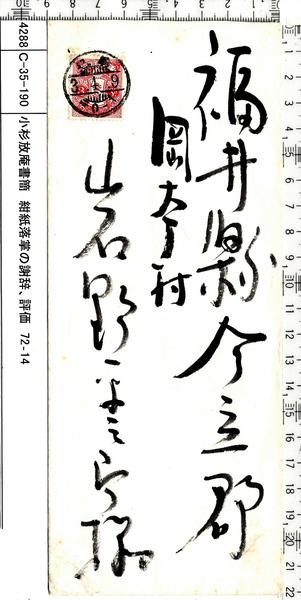 福井縣今立郡
岡本村
岩野平三郎様
4288 C-35-190 小杉放庵書簡 紺紙落掌の謝辞、評価 72-14